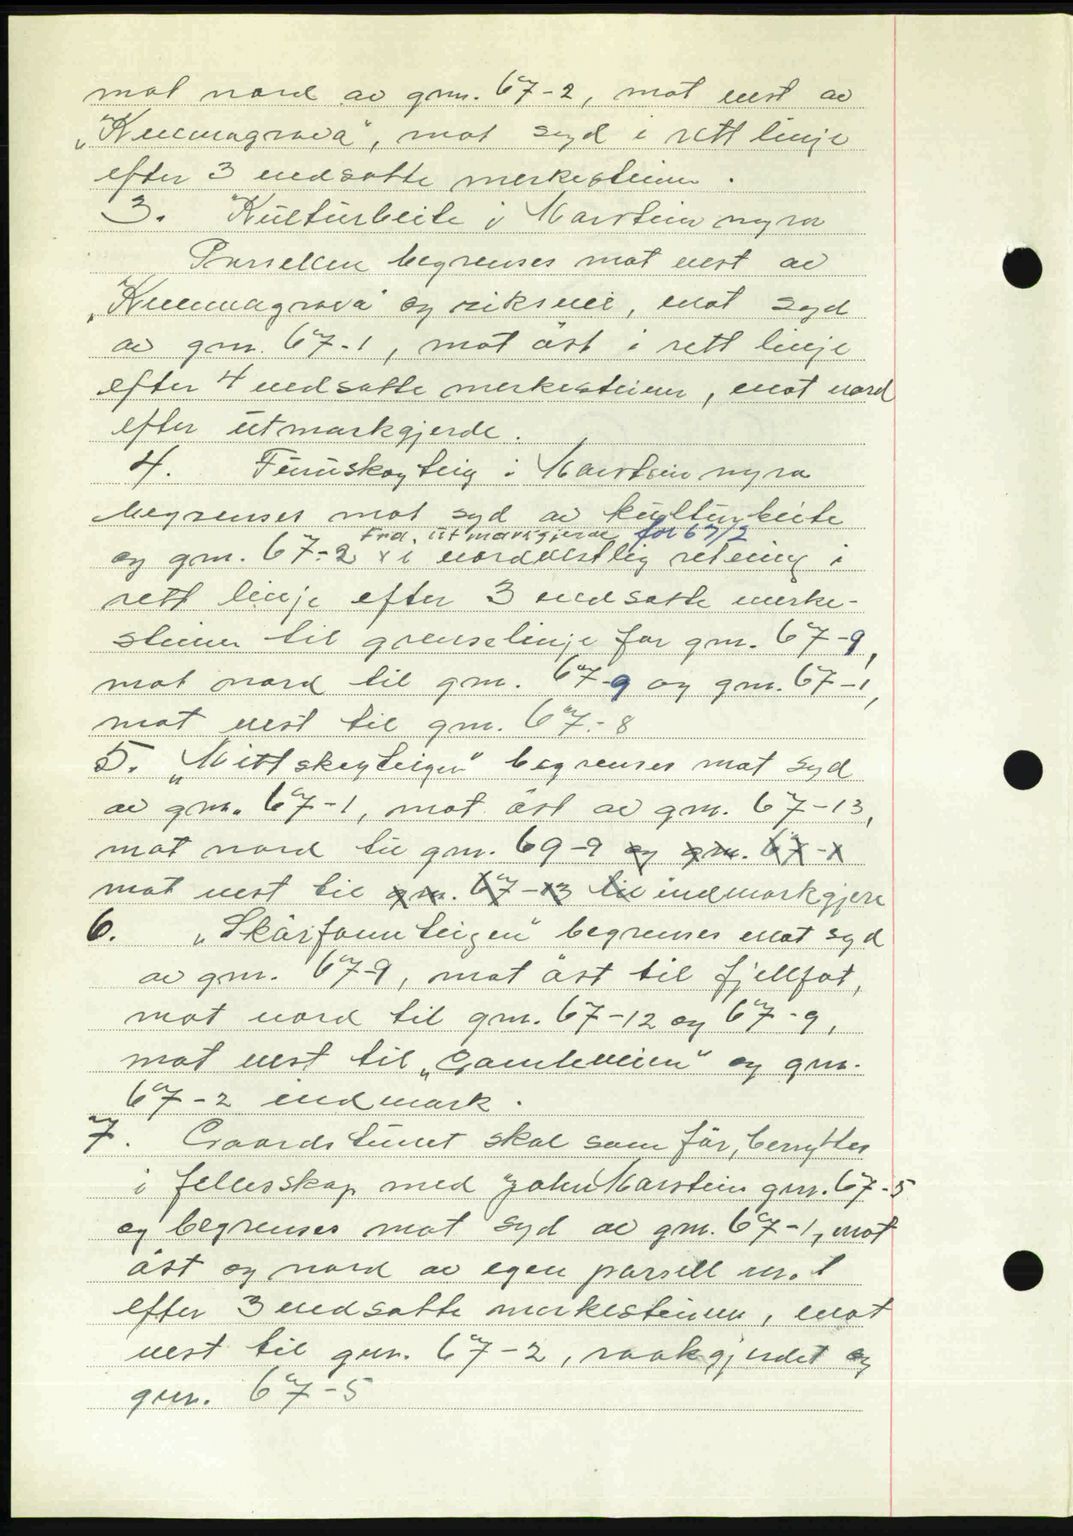 mot nord av gnr. 67-2, mot vest av
„Kvennagrova", mot syd i rett linje
efter 3 nedsatte merkesteiner.
3. Kulturbeite i Marstein myra
Parsellen begrenses mot vest av
„Kvennagrova" og riksvei, mot syd
av gnr. 67-1, mot öst i rett linje
efter 4 nedsatte merkesteiner, mot nord
efter utmarkgjerde.
4. Furuskogteig i Marstein myra
begrenses mot syd av kulturbeite
Fra. utmarkgjerde for 67/2
og gnr. 67-2 x i nordvestlig retning i
rett linje efter 3 nedsatte merke-
steiner til grenselinje for gnr. 67-9,
mot nord til gnr. 67-9 og gnr. 67-1,
mot vest til gnr. 67-8
5. „Mittskogteigen" begrenses mot syd
av gnr. 67-1, mot öst av gnr. 67-13,
mot nord til gnr. 69-9 og gnr. 67-1
mot vest til gnr. 67-13 til indmarkgjere
6. „Skårfonnteigen" begrenses mot syd
av gnr. 67-9, mot öst til fjellfot,
mot nord til gnr. 67-12 og 67-9,
mot vest til „Gamleveien" og gnr.
67-2 indmark.
7. Gaardstunet skal som för, benyttes
i fellesskap med John Marstein gnr. 67-5
og begrenses mot syd av gnr. 67-1, mot
öst og nord av egen parsell nr. 1
efter 3 nedsatte merkesteiner, mot
vest til gnr. 67-2, raakgjerdet og
gnr. 67-5